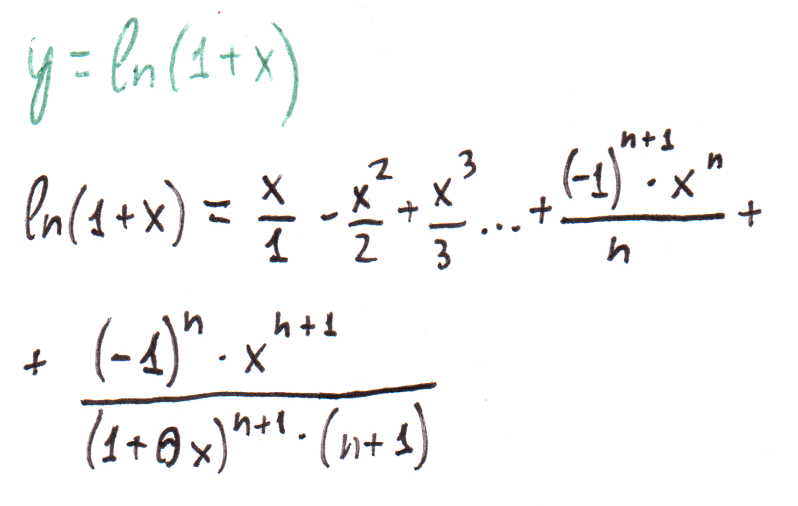 y = ln(1+x)
ln(1+x) = x/1 - x^2/2 + x^3/3 ... + (-1)^(n+1) · x^n / n +
+ (-1)^n · x^(n+1) / (1+θx)^(n+1) · (n+1)